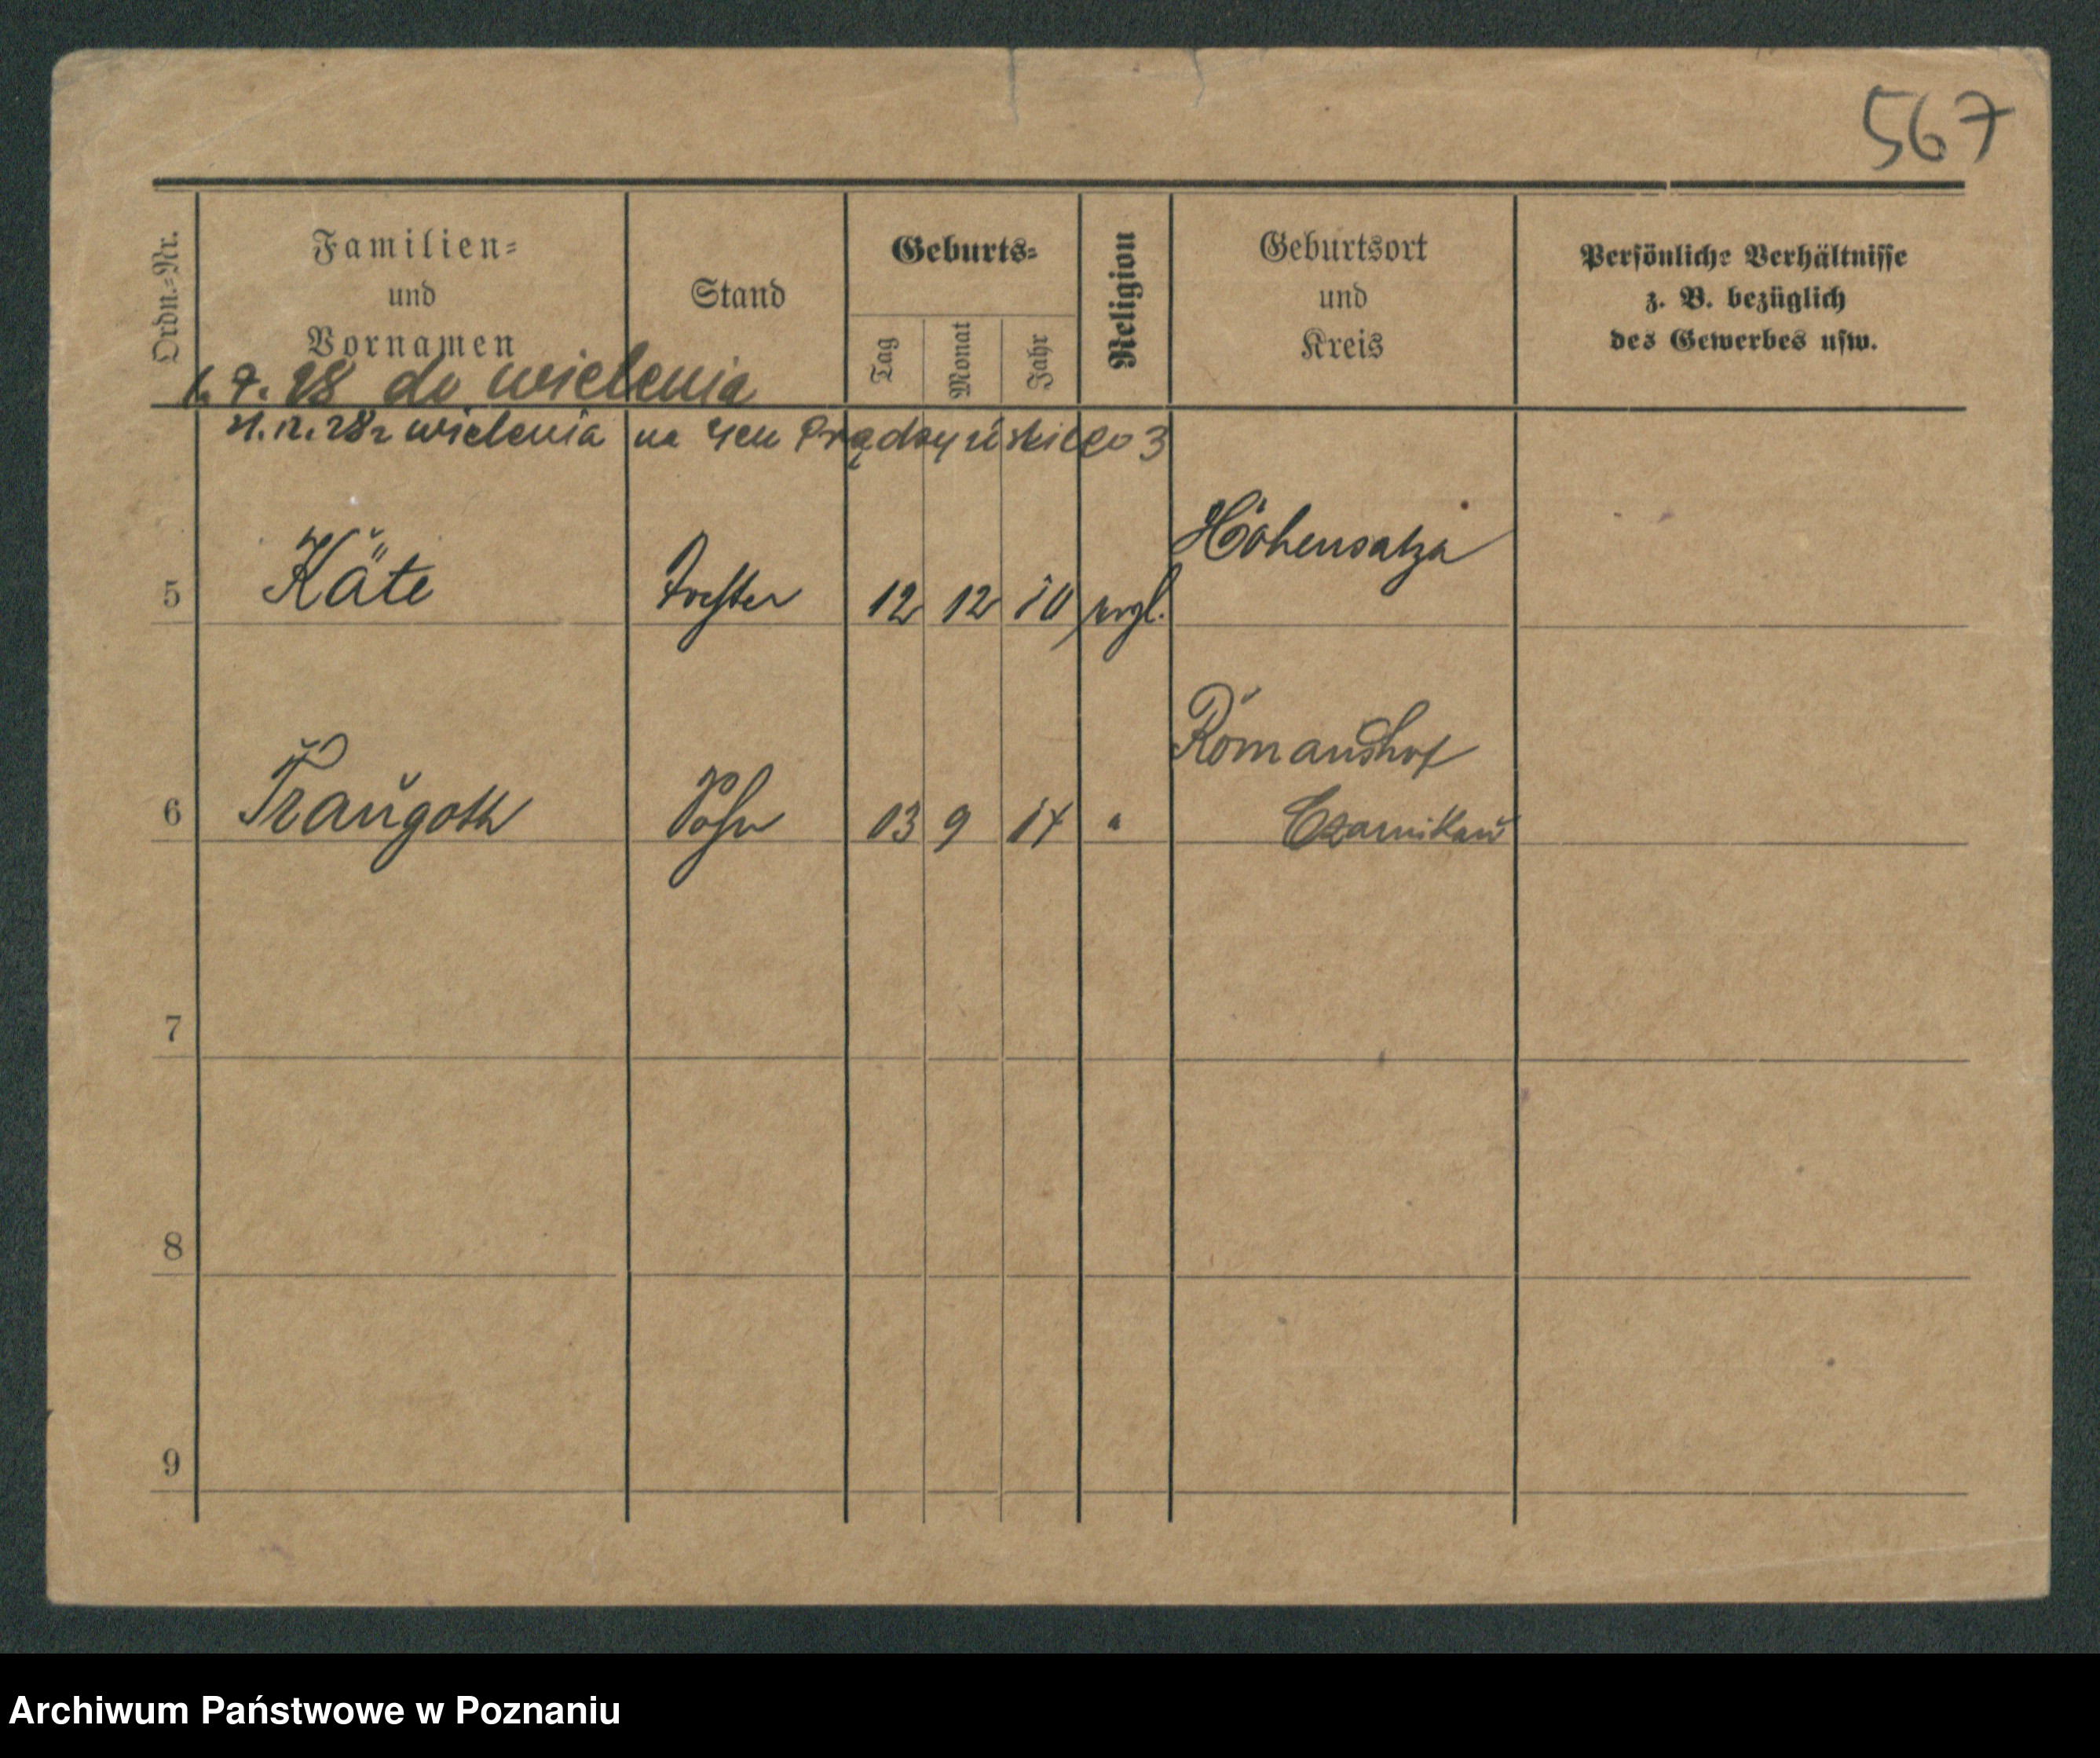 567
Ordn.=Nr.
Familien=
und
Vornamen
Stand
Geburts=
Tag
Monat
Jahr
Religion
Geburtsort
und
Kreis
Persönliche Verhältnisse
z. B. bezüglich
des Gewerbes usw.
1. 7. 28 do wielenia
wielenia na Gen Prądzyńskiego 3
Hohensalza
5 Käte Tochter 12 12 10 evgl.
Romanshof
6 Traugott Sohn 13 9 14 "
Czarnikau
7
8
9
Archiwum Państwowe w Poznaniu